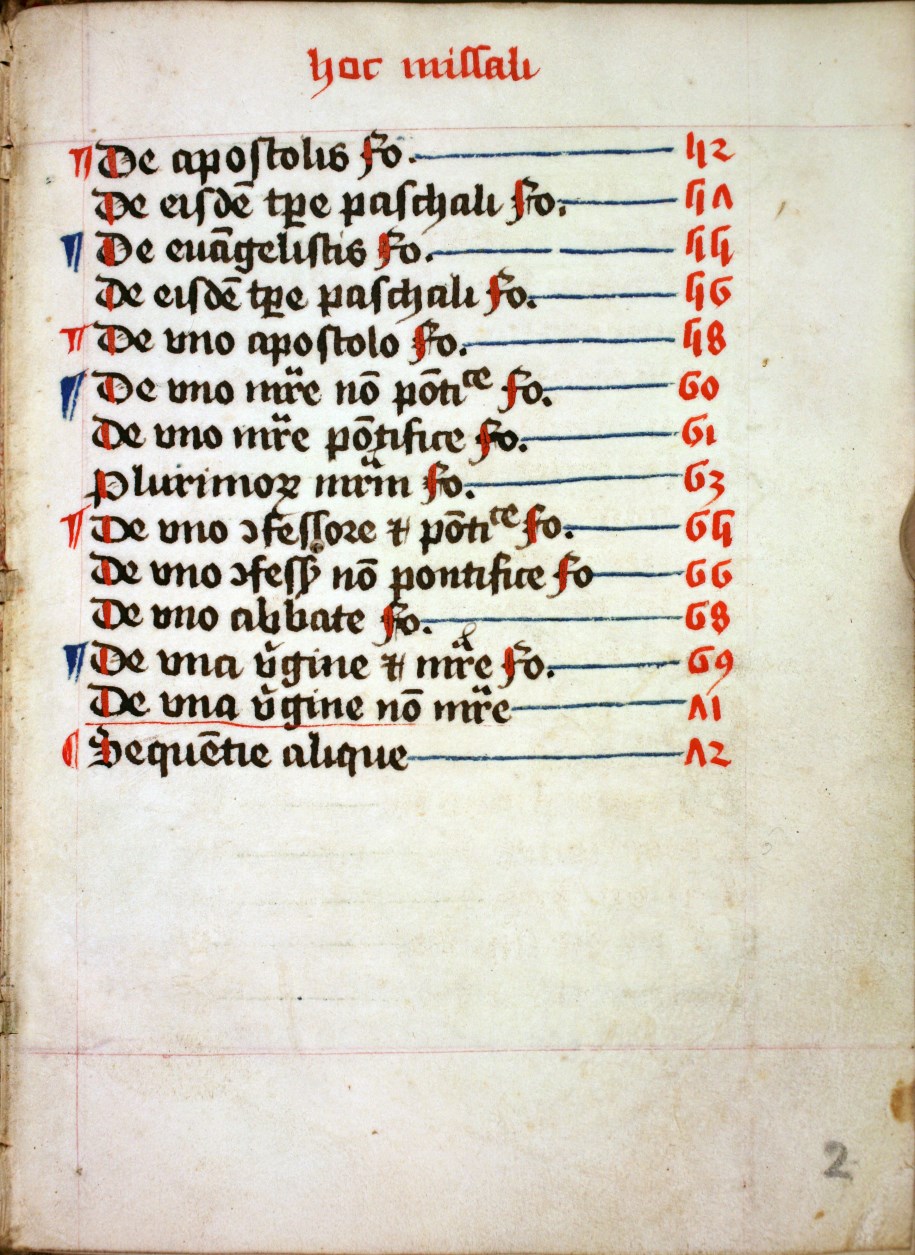 hoc missali
¶ De apostolis fo. 52
De eisdē tꝑe paschali fo. 57
¶ De euāgelistis fo. 55
De eisdē tꝑe paschali fo. 56
¶ De vno apostolo fo. 58
¶ De vno mr̃e nō pōtiᶜᵉ fo. 60
De vno mr̃e pōtifice fo. 61
Plurimoꝝ mr̃m fo. 63
¶ De vno ꝯfessore ⁊ pōtiᶜᵉ fo. 65
De vno ꝯfessꝭ nō pontifice fo 66
De vno abbate fo. 68
¶ De vna v̓gine ⁊ mr̃e fo. 69
De vna v̓gine nō mr̃e 71
¶ Sequētie alique 72
2